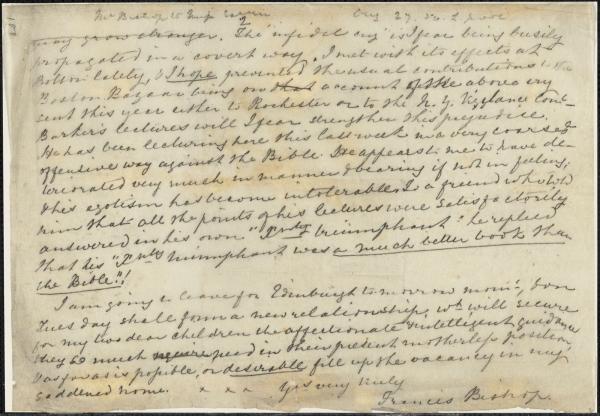 Mr Bishop to Miss Estlin Aug 27.
2
may grow stronger. The "infidel cry" is I fear being busily
propagated in a covert way. I met with its effects at
Bolton lately, & I hope prevented the usual contributions to the
Boston Bazaar being on that account of the above cry
sent this year either to Rochester or to the N. Y. Vigilance Comtee
Barker's lectures will I fear strengthen this prejudice.
He has been lecturing here this last week in a very coarse &
offensive way against the Bible. He appears to me to have de-
teriorated very much in manner & bearing if not in feeling;
& his egotism has become intolerable. To a friend who told
him that all the points of his lectures were satisfactorily
answered in his own "Xnty triumphant" he replied
that his "Xnty triumphant was a much better book than
the Bible"!
I am going to leave for Edinburgh to-morrow morng, & on
Tuesday shall form a new relationship, wh will secure
for my two dear children the affectionate & intelligent guidance
they so much need in their present motherless position,
& as far as is possible, or desirable fill up the vacancy in my
saddened home. x x x Yrs very truly
Francis Bishop.